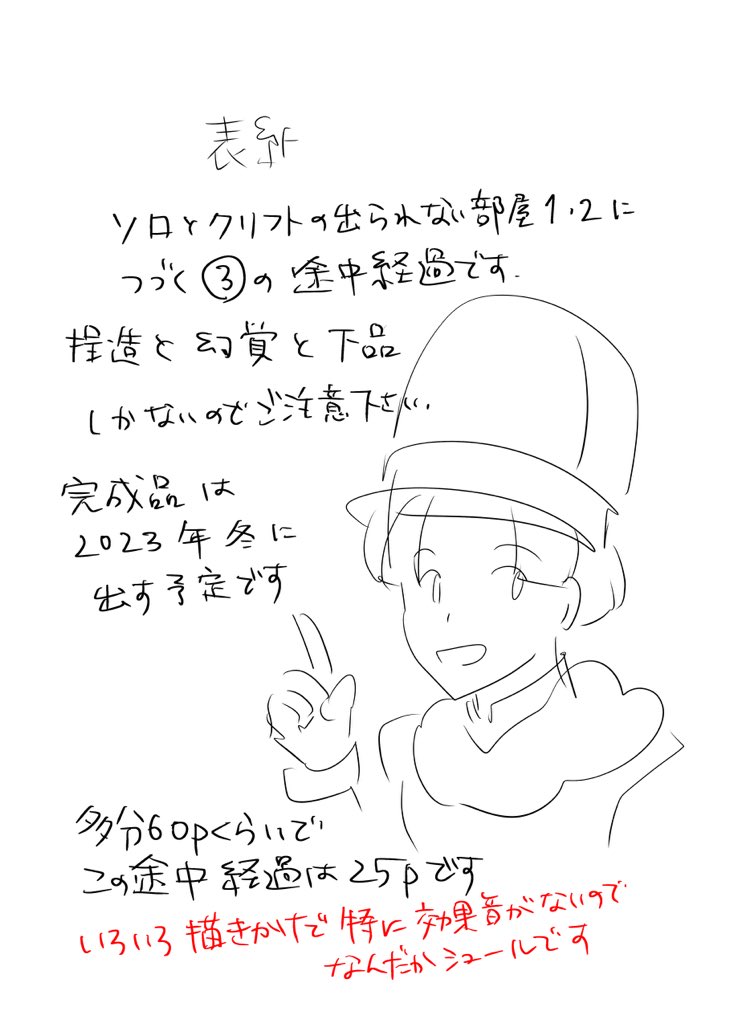 表紙
ソロとクリフトの出られない部屋1.2に
つづく③の途中経過です.
捏造と幻覚と下品
しかないのでご注意下さい.
完成品は
2023年冬に
出す予定です
多分60pくらいで
この途中経過は25pです
いろいろ描きかけで特に効果音がないので
なんだかシュールです